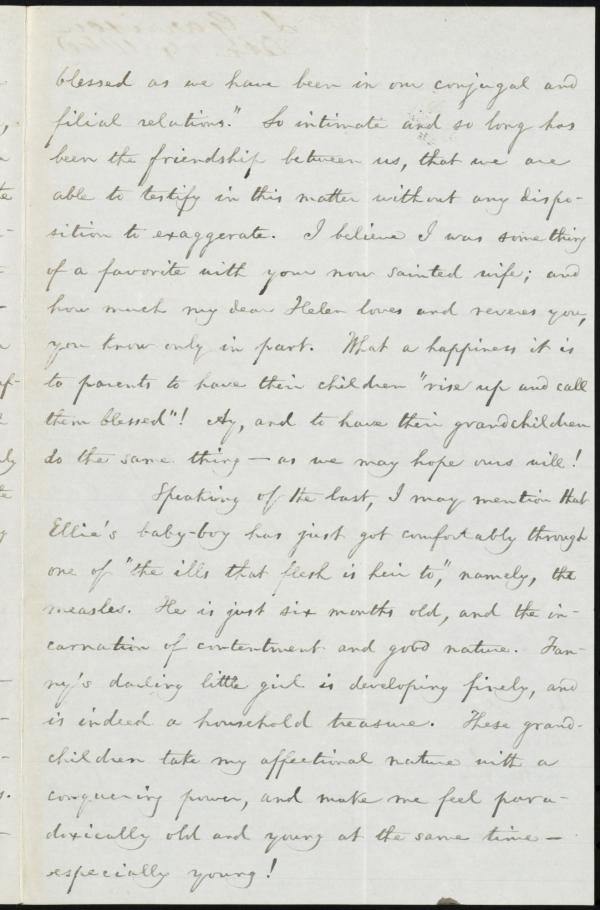 blessed as we have been in our conjugal and
filial relations." So intimate and so long has
been the friendship between us, that we are
able to testify in this matter without any dispo-
sition to exaggerate. I believe I was something
of a favorite with your now sainted wife; and
how much my dear Helen loves and reveres you,
you know only in part. What a happiness it is
to parents to have their children "rise up and call
them blessed"! Ay, and to have their grandchildren
do the same thing — as we may hope ours will!
Speaking of the last, I may mention that
Ellie's baby-boy has just got comfortably through
one of "the ills that flesh is heir to," namely, the
measles. He is just six months old, and the in-
carnation of contentment and good nature. Fan-
ny's darling little girl is developing finely, and
is indeed a household treasure. These grand-
children take my affectional nature with a
conquering power, and make me feel para-
doxically old and young at the same time —
especially young!